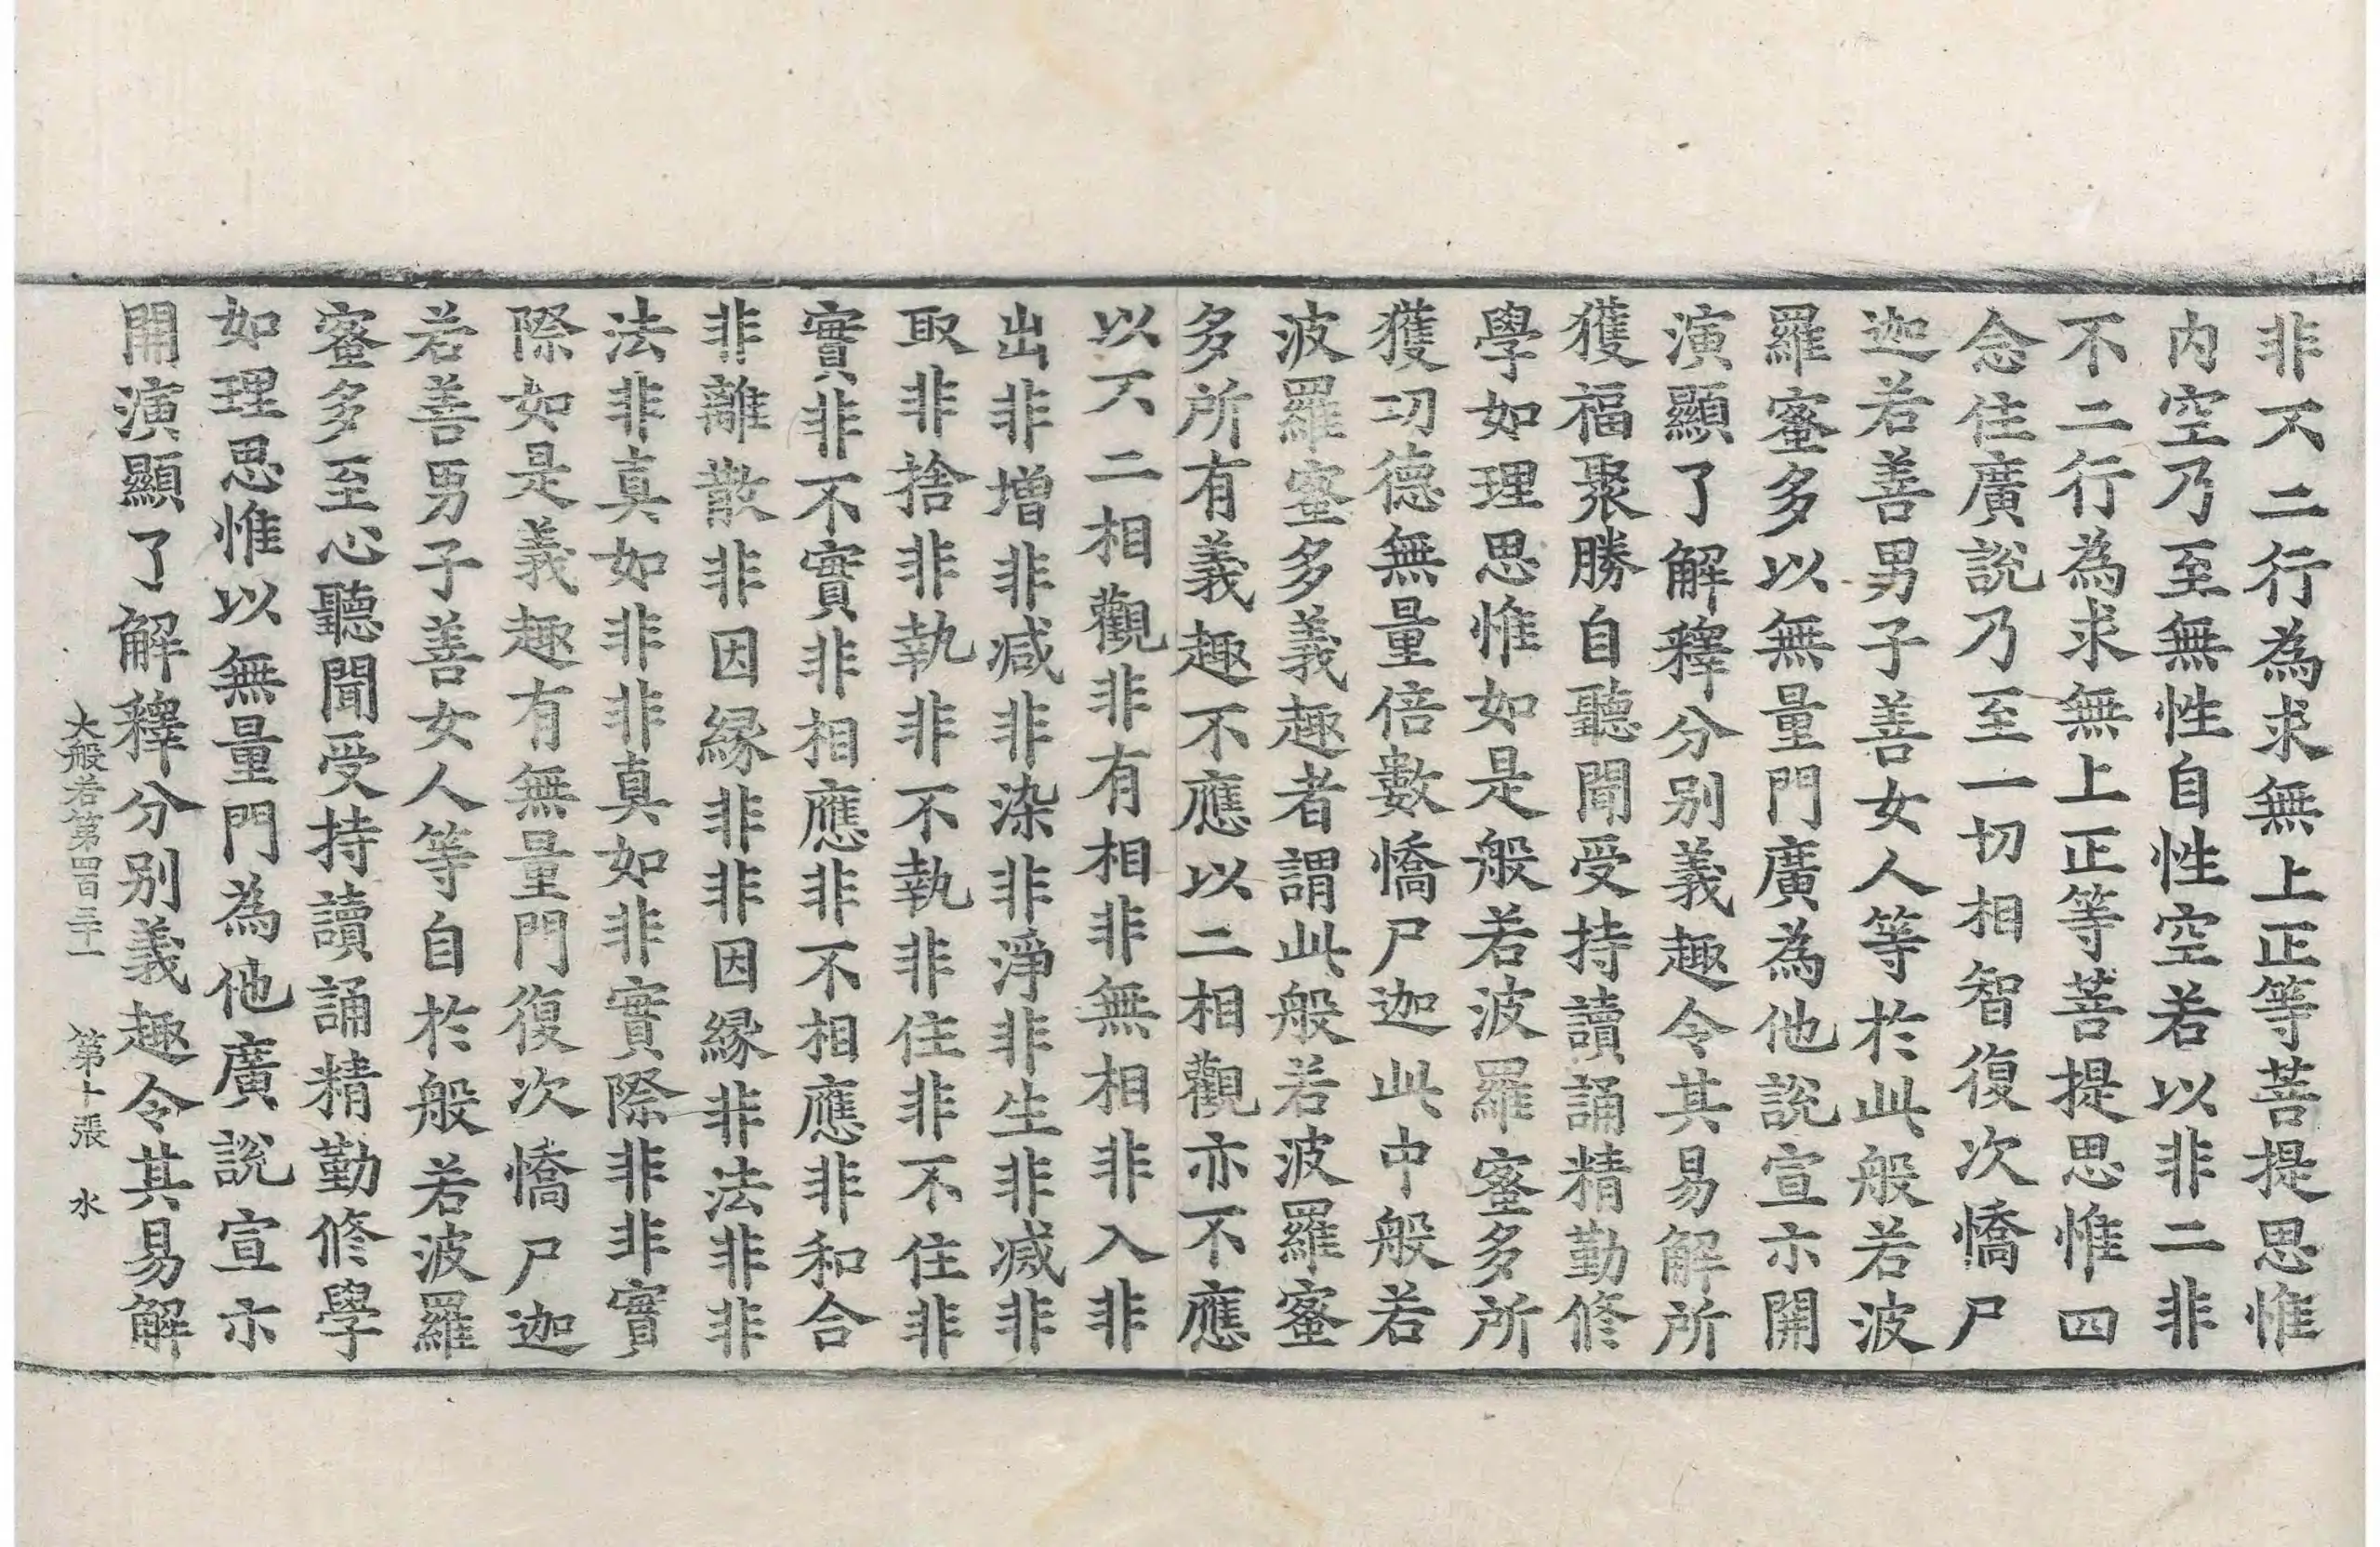 非不二行為求無上正等菩提思惟
内空乃至無性自性空若以非二非
不二行為求無上正等菩提思惟四
念住廣說乃至一切相智復次憍尸
迦若善男子善女人等於此般若波
羅蜜多以無量門廣為他說宣示開
演顯了解釋分別義趣令其易解所
獲福聚勝自聽聞受持讀誦精勤修
學如理思惟如是般若波羅蜜多所
獲功德無量倍數憍尸迦此中般若
波羅蜜多義趣者謂此般若波羅蜜
多所有義趣不應以二相觀亦不應
以不二相觀非有相非無相非入非
出非增非減非染非淨非生非滅非
取非捨非執非不執非住非不住非
實非不實非相應非不相應非和合
非離散非因緣非非因緣非法非非
法非真如非非真如非實際非非實
際如是義趣有無量門復次憍尸迦
若善男子善女人等自於般若波羅
蜜多至心聽聞受持讀誦精勤修學
如理思惟以無量門為他廣說宣示
開演顯了解釋分別義趣令其易解
大般若第四百三十一 第十張 水